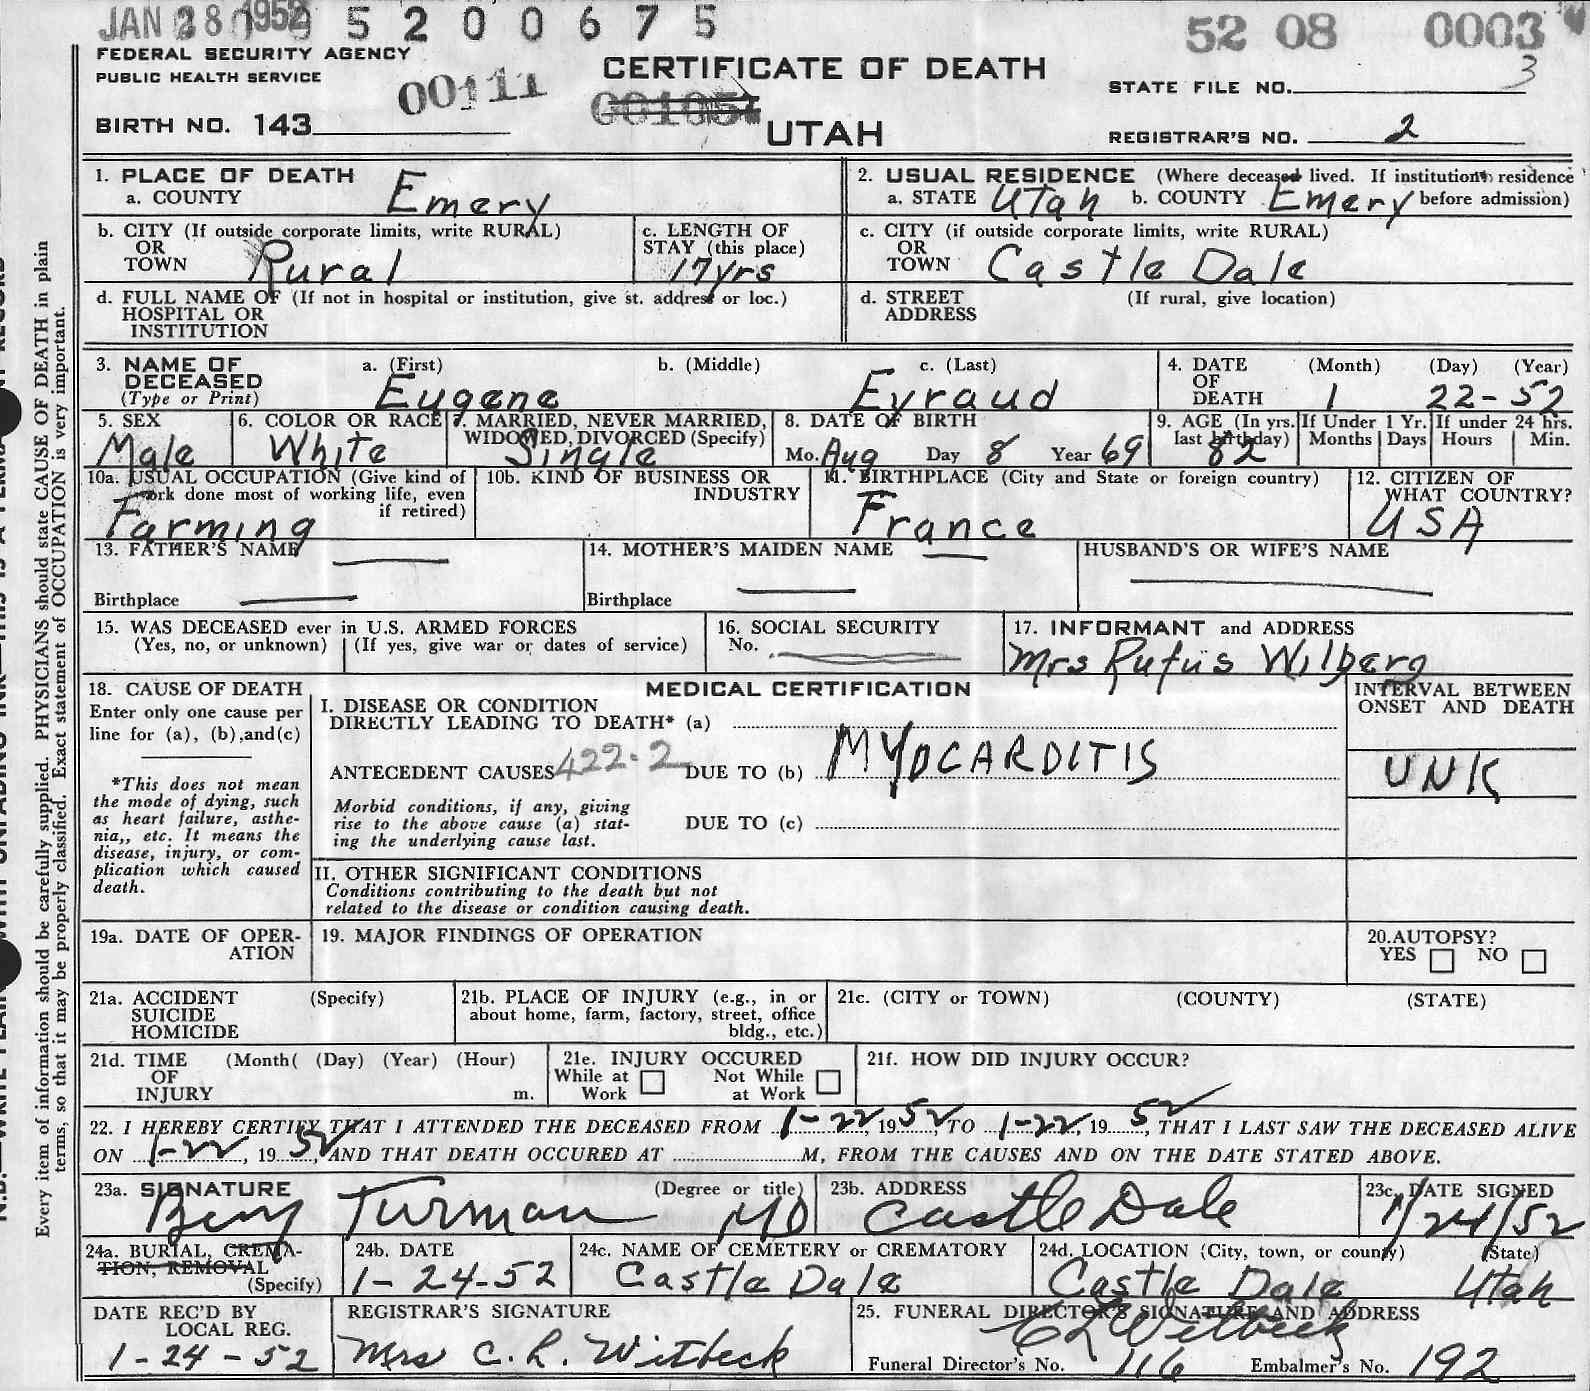 JAN 28 1952 5 2 0 0 6 7 5 52 08 0003
FEDERAL SECURITY AGENCY
PUBLIC HEALTH SERVICE
00111
CERTIFICATE OF DEATH
3
STATE FILE NO.
BIRTH NO. 143
UTAH
REGISTRAR'S NO. 2
1. PLACE OF DEATH
a. COUNTY Emery
2. USUAL RESIDENCE (Where deceased lived. If institution: residence
a. STATE Utah b. COUNTY Emery before admission)
b. CITY (If outside corporate limits, write RURAL)
OR
TOWN Rural
c. LENGTH OF
STAY (this place)
17yrs
c. CITY (if outside corporate limits, write RURAL)
OR
TOWN Castle Dale
d. FULL NAME OF (If not in hospital or institution, give st. address or loc.)
HOSPITAL OR
INSTITUTION
d. STREET (If rural, give location)
ADDRESS
3. NAME OF
DECEASED
(Type or Print)
a. (First) b. (Middle) c. (Last)
Eugene Eyraud
4. DATE (Month) (Day) (Year)
OF
DEATH 1 22-52
5. SEX
Male
6. COLOR OR RACE
White
7. MARRIED, NEVER MARRIED,
WIDOWED, DIVORCED (Specify)
Single
8. DATE OF BIRTH
Mo. Aug Day 8 Year 69
9. AGE (In yrs.
last birthday)
82
If Under 1 Yr.
Months Days
If under 24 hrs.
Hours Min.
10a. USUAL OCCUPATION (Give kind of
work done most of working life, even
if retired)
Farming
10b. KIND OF BUSINESS OR
INDUSTRY
11. BIRTHPLACE (City and State or foreign country)
France
12. CITIZEN OF
WHAT COUNTRY?
USA
13. FATHER'S NAME
Birthplace
14. MOTHER'S MAIDEN NAME
Birthplace
HUSBAND'S OR WIFE'S NAME
15. WAS DECEASED ever in U.S. ARMED FORCES
(Yes, no, or unknown) (If yes, give war or dates of service)
16. SOCIAL SECURITY
No.
17. INFORMANT and ADDRESS
Mrs Rufus Wilberg
18. CAUSE OF DEATH
Enter only one cause per
line for (a), (b),and(c)
*This does not mean
the mode of dying, such
as heart failure, asthe-
nia,, etc. It means the
disease, injury, or com-
plication which caused
death.
MEDICAL CERTIFICATION
I. DISEASE OR CONDITION
DIRECTLY LEADING TO DEATH* (a)
ANTECEDENT CAUSES 422-2 DUE TO (b) MYOCARDITIS
Morbid conditions, if any, giving
rise to the above cause (a) stat-
ing the underlying cause last.
DUE TO (c)
INTERVAL BETWEEN
ONSET AND DEATH
UNK
II. OTHER SIGNIFICANT CONDITIONS
Conditions contributing to the death but not
related to the disease or condition causing death.
19a. DATE OF OPER-
ATION
19. MAJOR FINDINGS OF OPERATION
20.AUTOPSY?
YES NO
21a. ACCIDENT (Specify)
SUICIDE
HOMICIDE
21b. PLACE OF INJURY (e.g., in or
about home, farm, factory, street, office
bldg., etc.)
21c. (CITY or TOWN) (COUNTY) (STATE)
21d. TIME (Month( (Day) (Year) (Hour)
OF
INJURY m.
21e. INJURY OCCURED
While at Not While
Work at Work
21f. HOW DID INJURY OCCUR?
22. I HEREBY CERTIFY THAT I ATTENDED THE DECEASED FROM 1-22, 1952, TO 1-22, 1952, THAT I LAST SAW THE DECEASED ALIVE
ON 1-22, 1952, AND THAT DEATH OCCURED AT M, FROM THE CAUSES AND ON THE DATE STATED ABOVE.
23a. SIGNATURE (Degree or title)
Turman MD
23b. ADDRESS
Castle Dale
23c. DATE SIGNED
1/24/52
24a. BURIAL, CREMA-
TION, REMOVAL
(Specify)
24b. DATE
1-24-52
24c. NAME OF CEMETERY or CREMATORY
Castle Dale
24d. LOCATION (City, town, or county) (State)
Castle Dale Utah
DATE REC'D BY
LOCAL REG.
1-24-52
REGISTRAR'S SIGNATURE
Mrs C. L. Witbeck
25. FUNERAL DIRECTOR'S SIGNATURE AND ADDRESS
CL Witbeck
Funeral Director's No. 116 Embalmer's No. 192
Every item of information should be carefully supplied. PHYSICIANS should state CAUSE OF DEATH in plain
terms, so that it may be properly classified. Exact statement of OCCUPATION is very important.